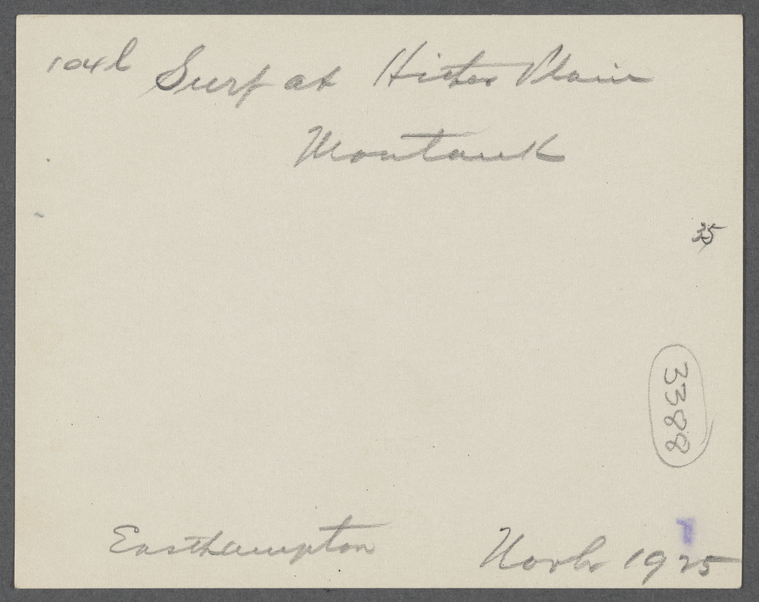 104b Surf at Hither Plain
Montauk
35
3388
Easthampton 1925